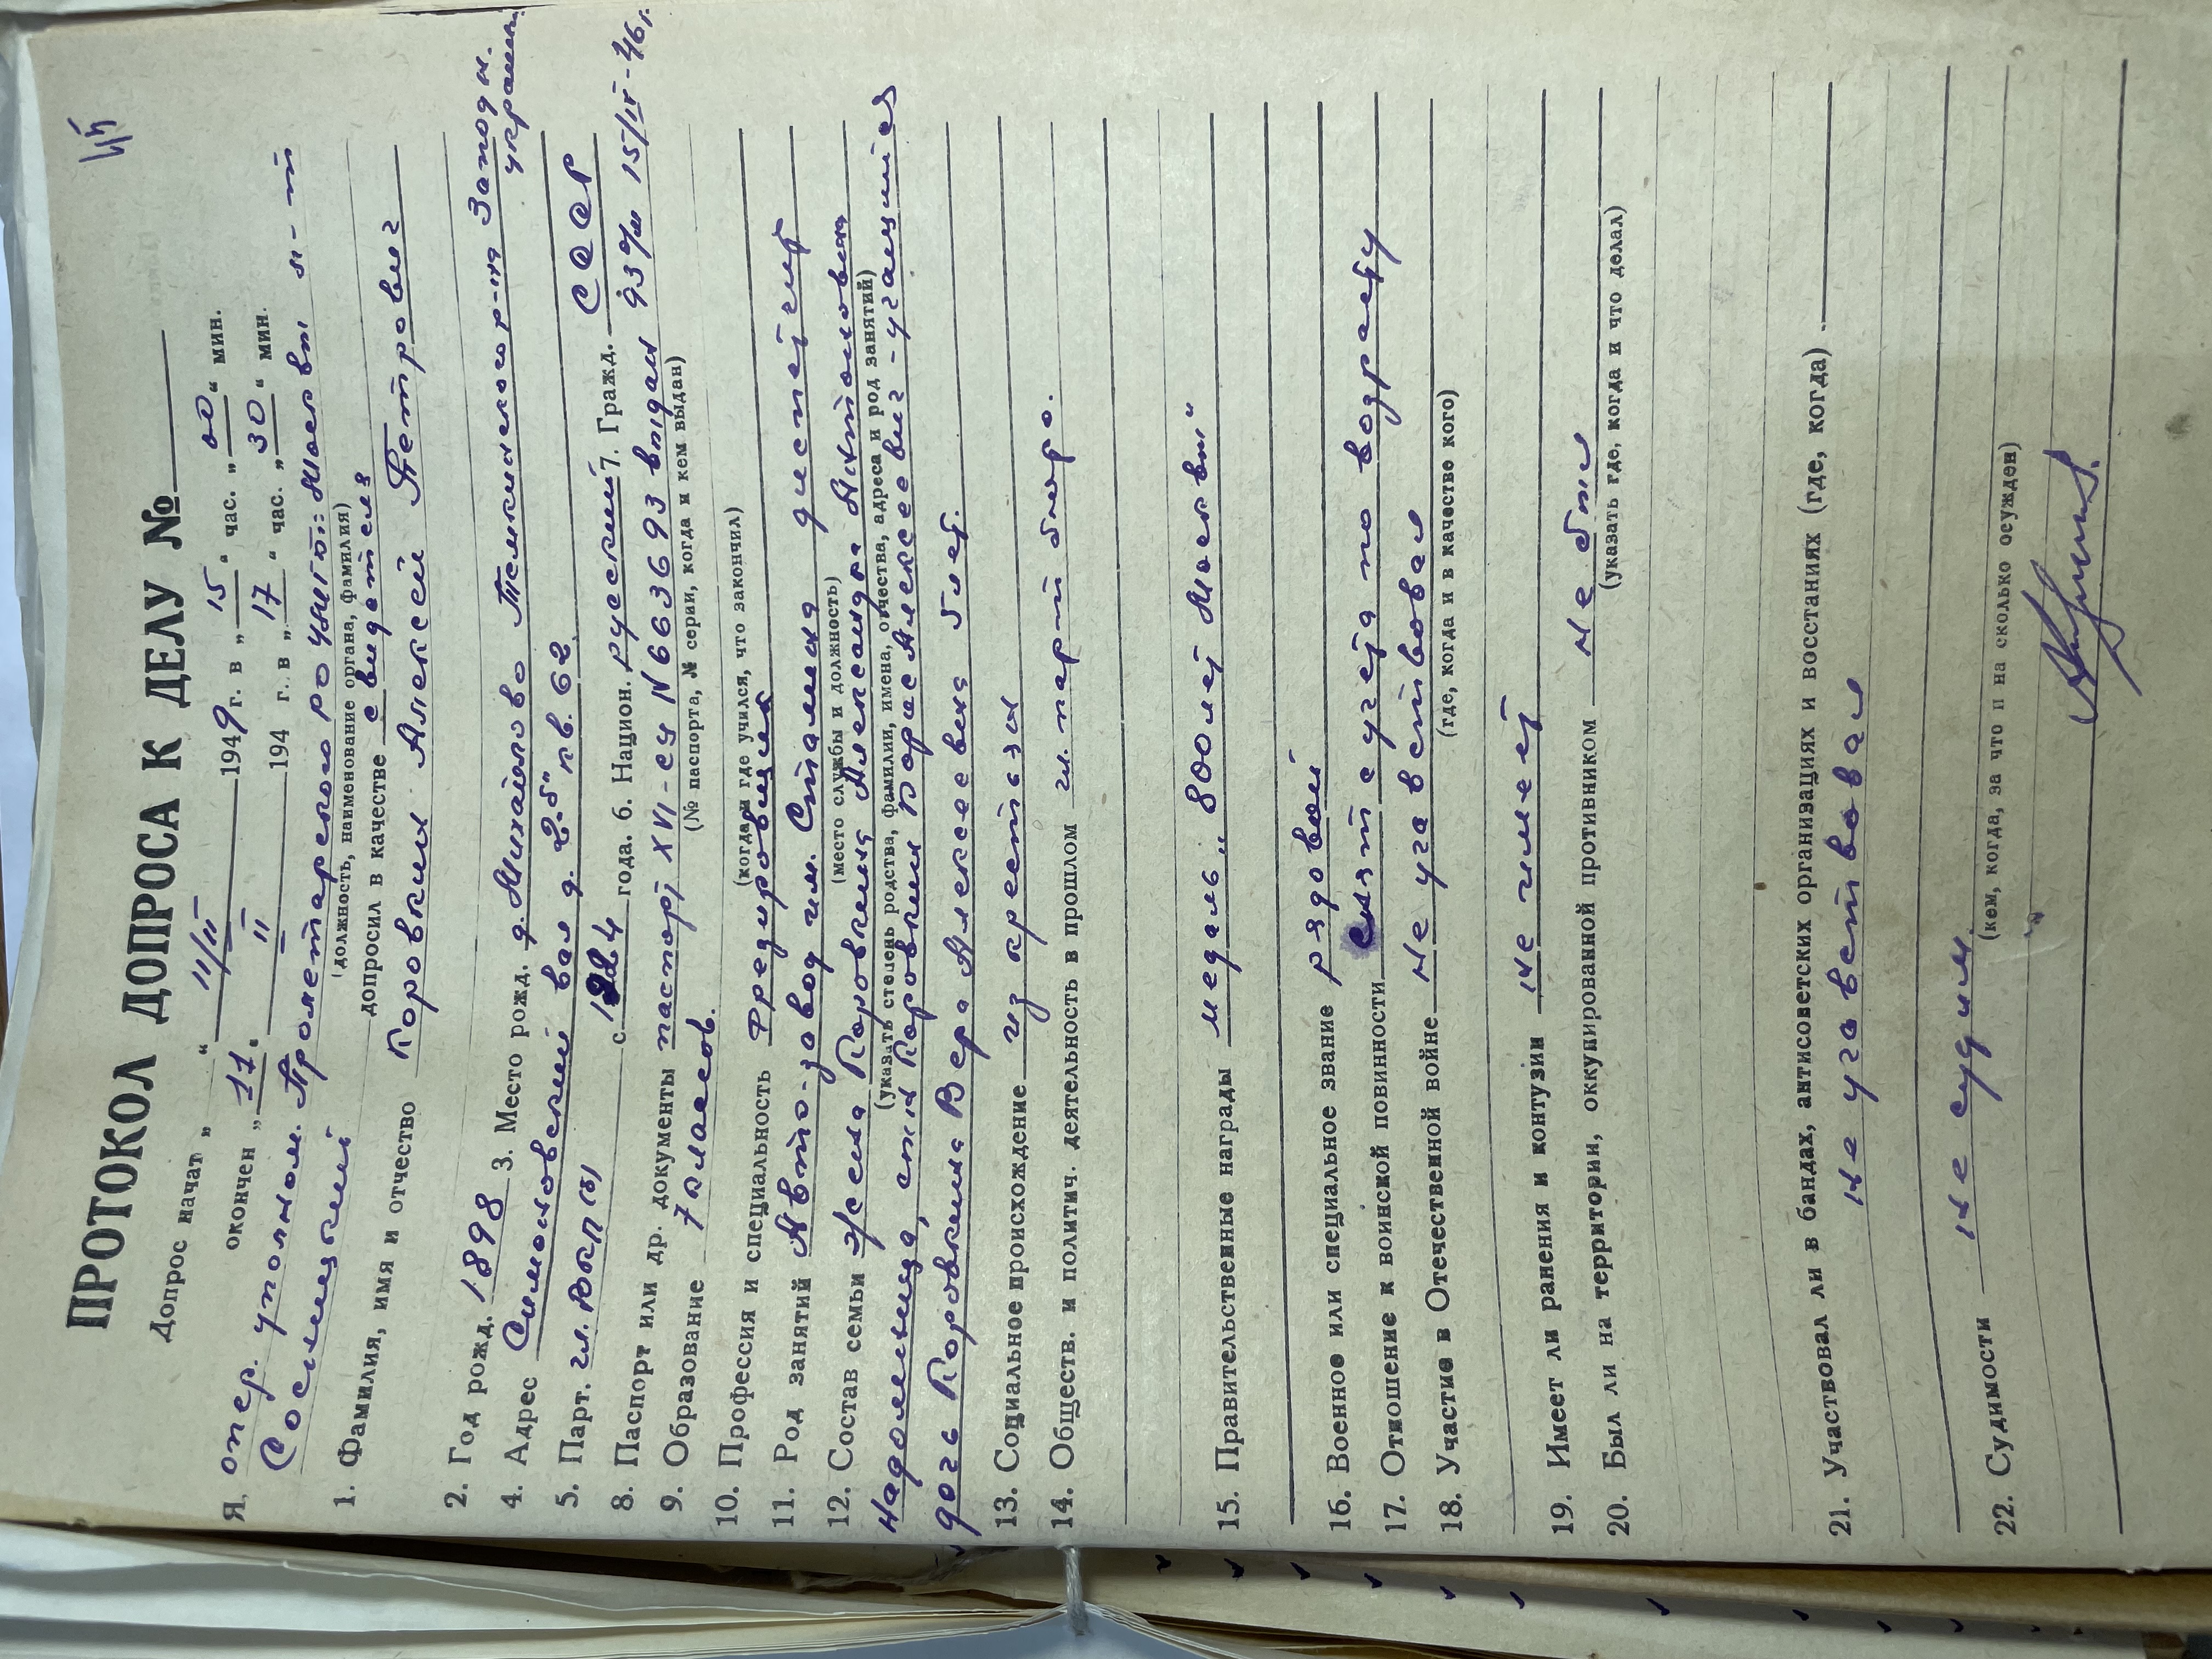 ПРОТОКОЛ ДОПРОСА К ДЕЛУ №
Допрос начат „ “ 11/II 1949 г. в „15“ час. „00“ мин.
окончен „11“ II 194 г. в „17“ час. „30“ мин.
Я, опер. уполном. Пролетарского РО УМГБ г. Москвы м-т
(должность, наименование органа, фамилия)
допросил в качестве свидетеля
1. Фамилия, имя и отчество Коровкин Алексей Петрович
2. Год рожд. 1898 3. Место рожд. д. Михайлово Темкинского р-на Западн.
4. Адрес Симоновский вал д. 2-б" кв. 62
5. Парт. чл. ВКП(б) с 1924 года. 6. Национ. русский 7. Гражд. СССР
8. Паспорт или др. документы паспорт XVI-СУ N 663693 выдан 93 о/м 15/IV-46г.
(№ паспорта, № серии, когда и кем выдан)
9. Образование 7 классов.
(когда и где учился, что закончил)
10. Профессия и специальность фрезеровщик
11. Род занятий Авто-завод им. Сталина
(место службы и должность)
12. Состав семьи Жена Коровкина Александра Антоновна
(указать степень родства, фамилии, имена, отчества, адреса и род занятий)
надомница, сын Коровкин Борис Алексеевич - учащийся
дочь Коровкина Вера Алексеевна 5 лет.
13. Социальное происхождение из крестьян
14. Обществ. и политич. деятельность в прошлом чл. парт бюро.
15. Правительственные награды медаль „800 лет Москвы"
16. Военное или специальное звание рядовой
17. Отношение к воинской повинности снят с учета по возрасту
18. Участие в Отечественной войне Не участвовал
(где, когда и в качестве кого)
19. Имеет ли ранения и контузии не имеет
20. Был ли на территории, оккупированной противником не был
(указать где, когда и что делал)
21. Участвовал ли в бандах, антисоветских организациях и восстаниях (где, когда)
не участвовал
22. Судимости не судим.
(кем, когда, за что и на сколько осужден)